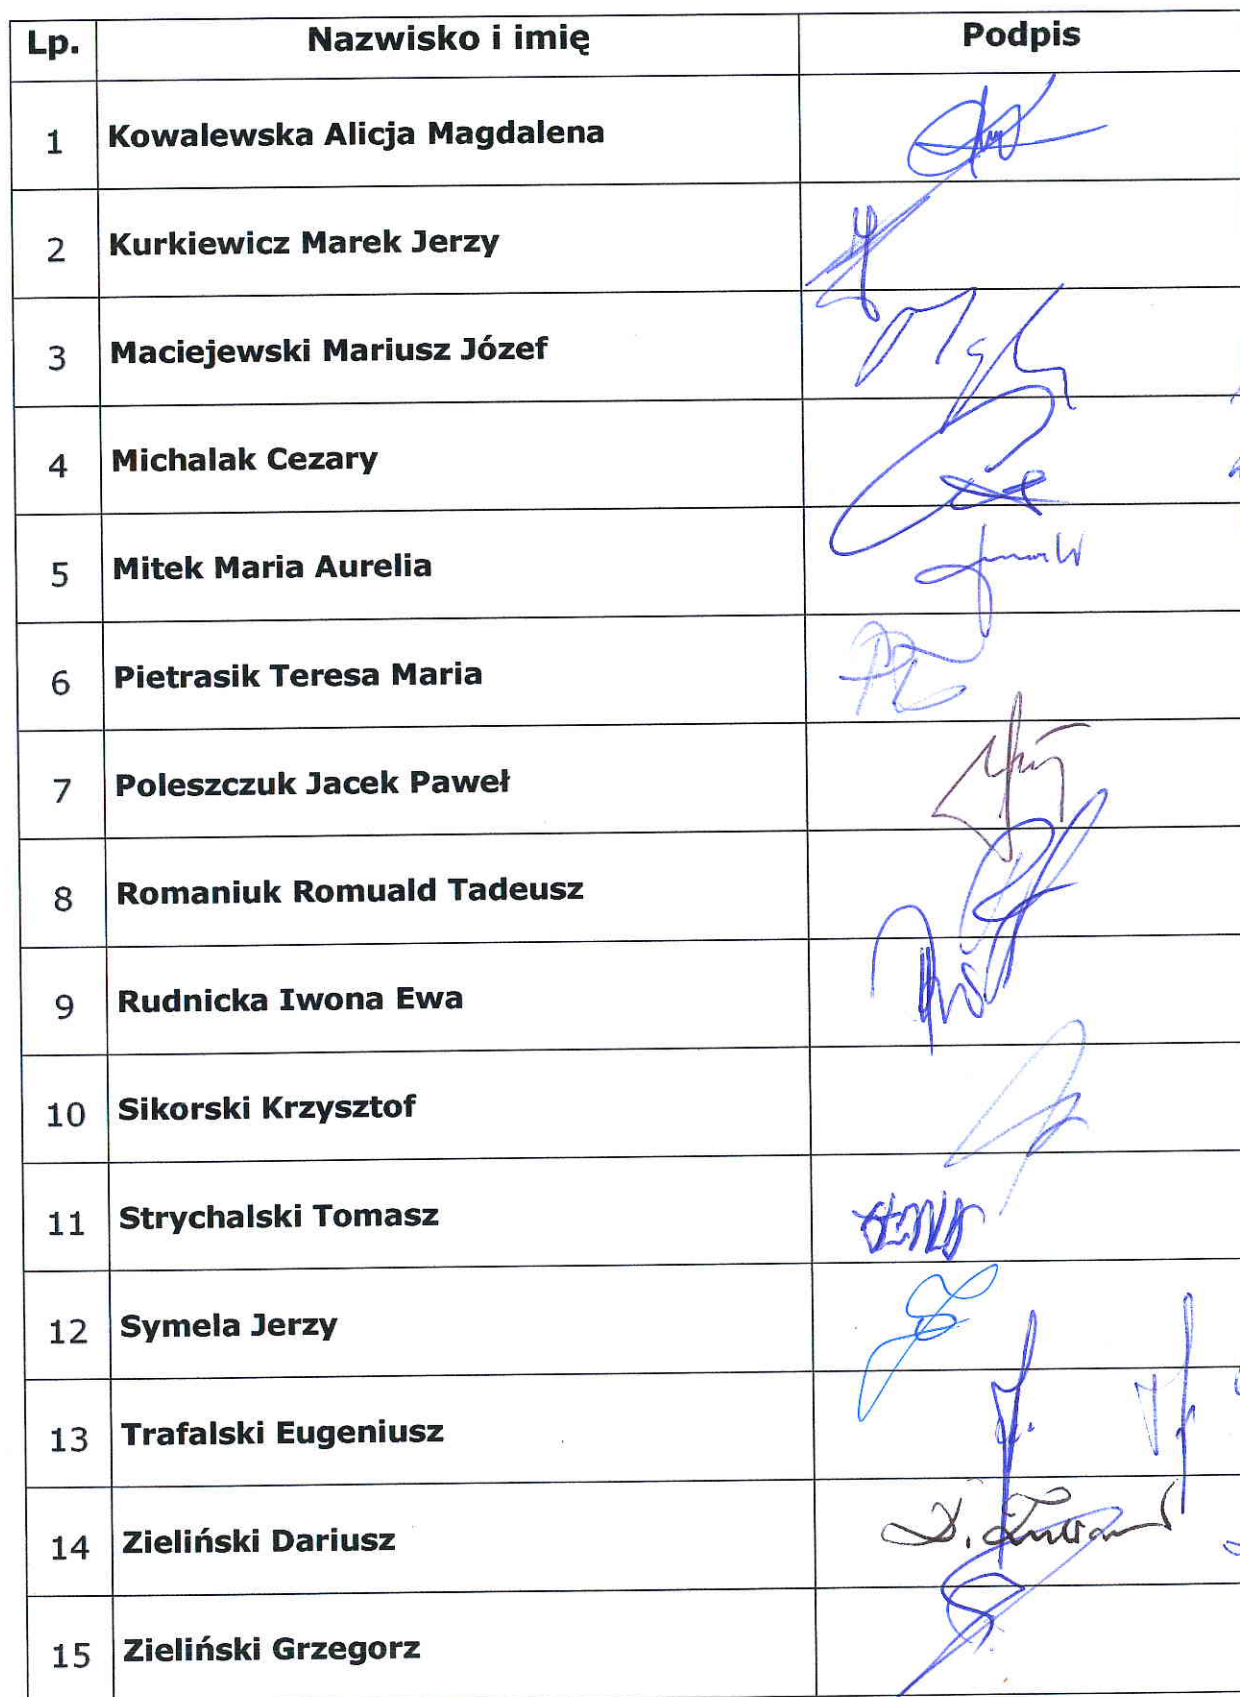 Lp. Nazwisko i imię Podpis
1 Kowalewska Alicja Magdalena
2 Kurkiewicz Marek Jerzy
3 Maciejewski Mariusz Józef
4 Michalak Cezary
5 Mitek Maria Aurelia
6 Pietrasik Teresa Maria
7 Poleszczuk Jacek Paweł
8 Romaniuk Romuald Tadeusz
9 Rudnicka Iwona Ewa
10 Sikorski Krzysztof
11 Strychalski Tomasz
12 Symela Jerzy
13 Trafalski Eugeniusz
14 Zieliński Dariusz
15 Zieliński Grzegorz